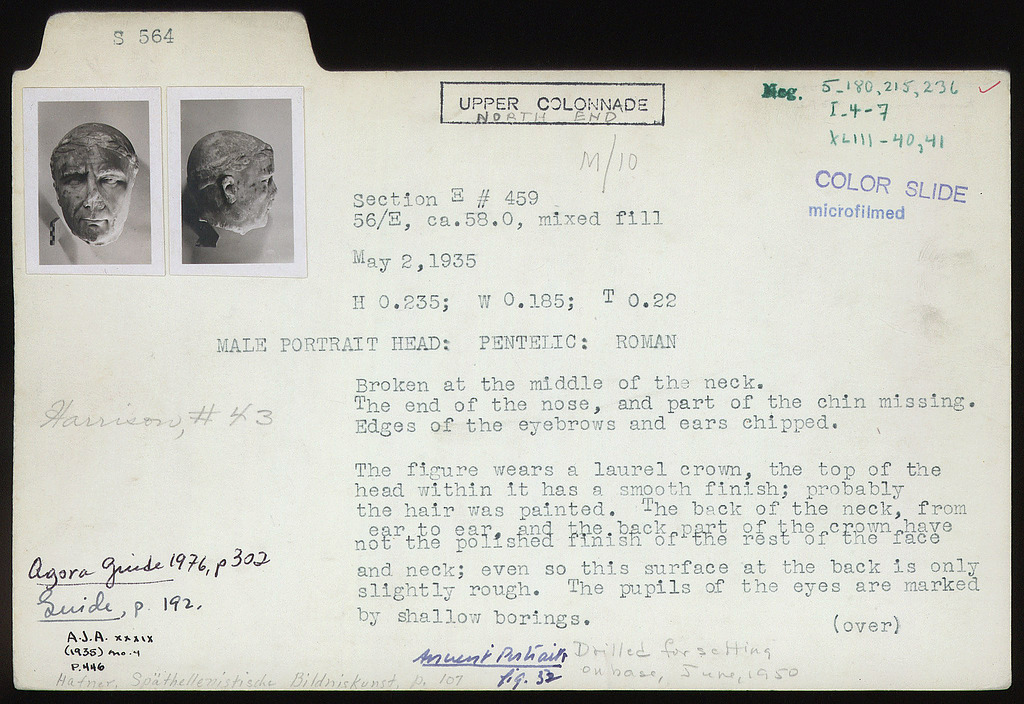 S 564
UPPER COLONNADE
NORTH END
Neg. 5-180,215,236
I-4-7
XLIII-40,41
M/10
COLOR SLIDE
microfilmed
Section E # 459
56/E, ca.58.0, mixed fill
May 2,1935
H 0.235; W 0.185; T 0.22
MALE PORTRAIT HEAD: PENTELIC: ROMAN
Broken at the middle of the neck.
The end of the nose, and part of the chin missing.
Edges of the eyebrows and ears chipped.
Harrison, # 43
The figure wears a laurel crown, the top of the
head within it has a smooth finish; probably
the hair was painted. The back of the neck, from
ear to ear, and the back part of the crown have
not the polished finish of the rest of the face
and neck; even so this surface at the back is only
slightly rough. The pupils of the eyes are marked
by shallow borings.
(over)
Agora Guide 1976, p 302
Guide, p. 192.
A.J.A. XXXIX
(1935) no. 4
P. 446
Hafner, Späthellenistische Bildniskunst, p. 107
Ancient Portraits
fig. 32
Drilled for setting
on base, June, 1950